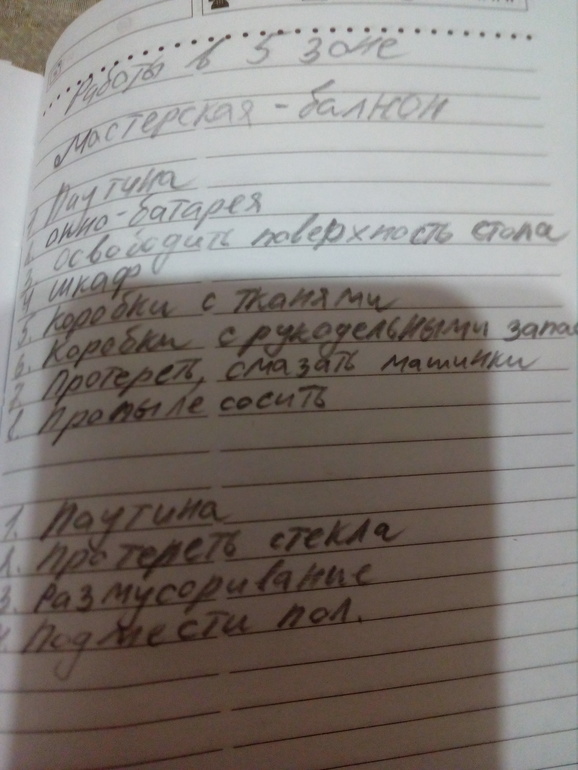 Работы в 5 зоне
Мастерская - балкон
1 Паутина
2. окно-батарея
3 освободить поверхность стола
4 шкаф
5. коробки с тканями
6. Коробки с рукодельными запас
7 Протереть, смазать машинки
8. Пропылесосить
1. Паутина
2. Протереть стекла
3. Размусоривание
4. Подмести пол.